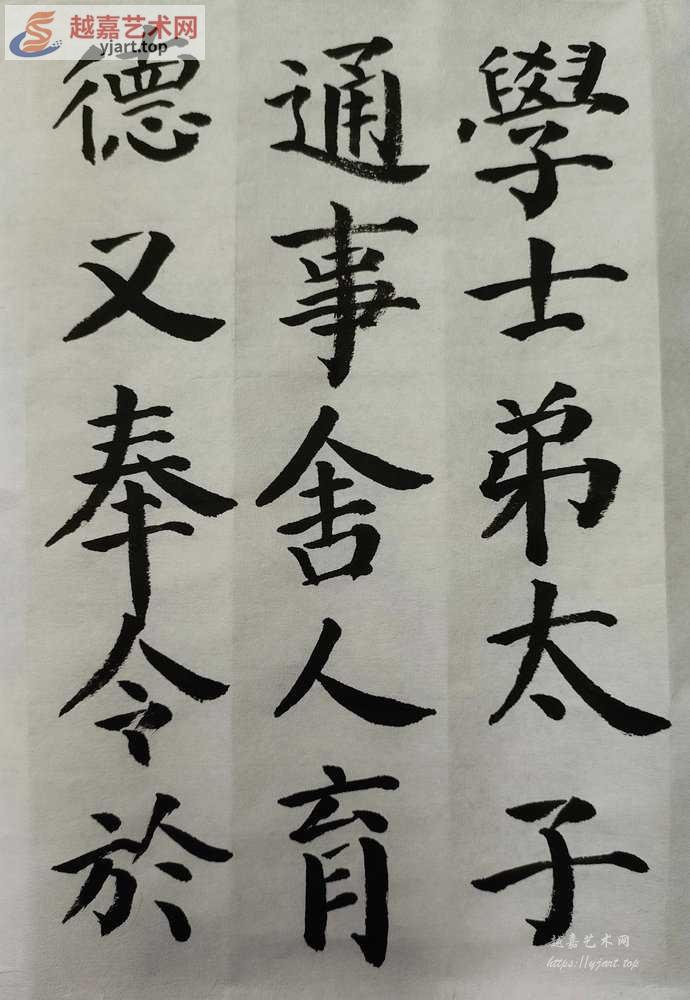 越嘉艺术网
yjart.top
學士弟太子
通事舍人育
德又奉令於
越嘉艺术网
https://yjart.top